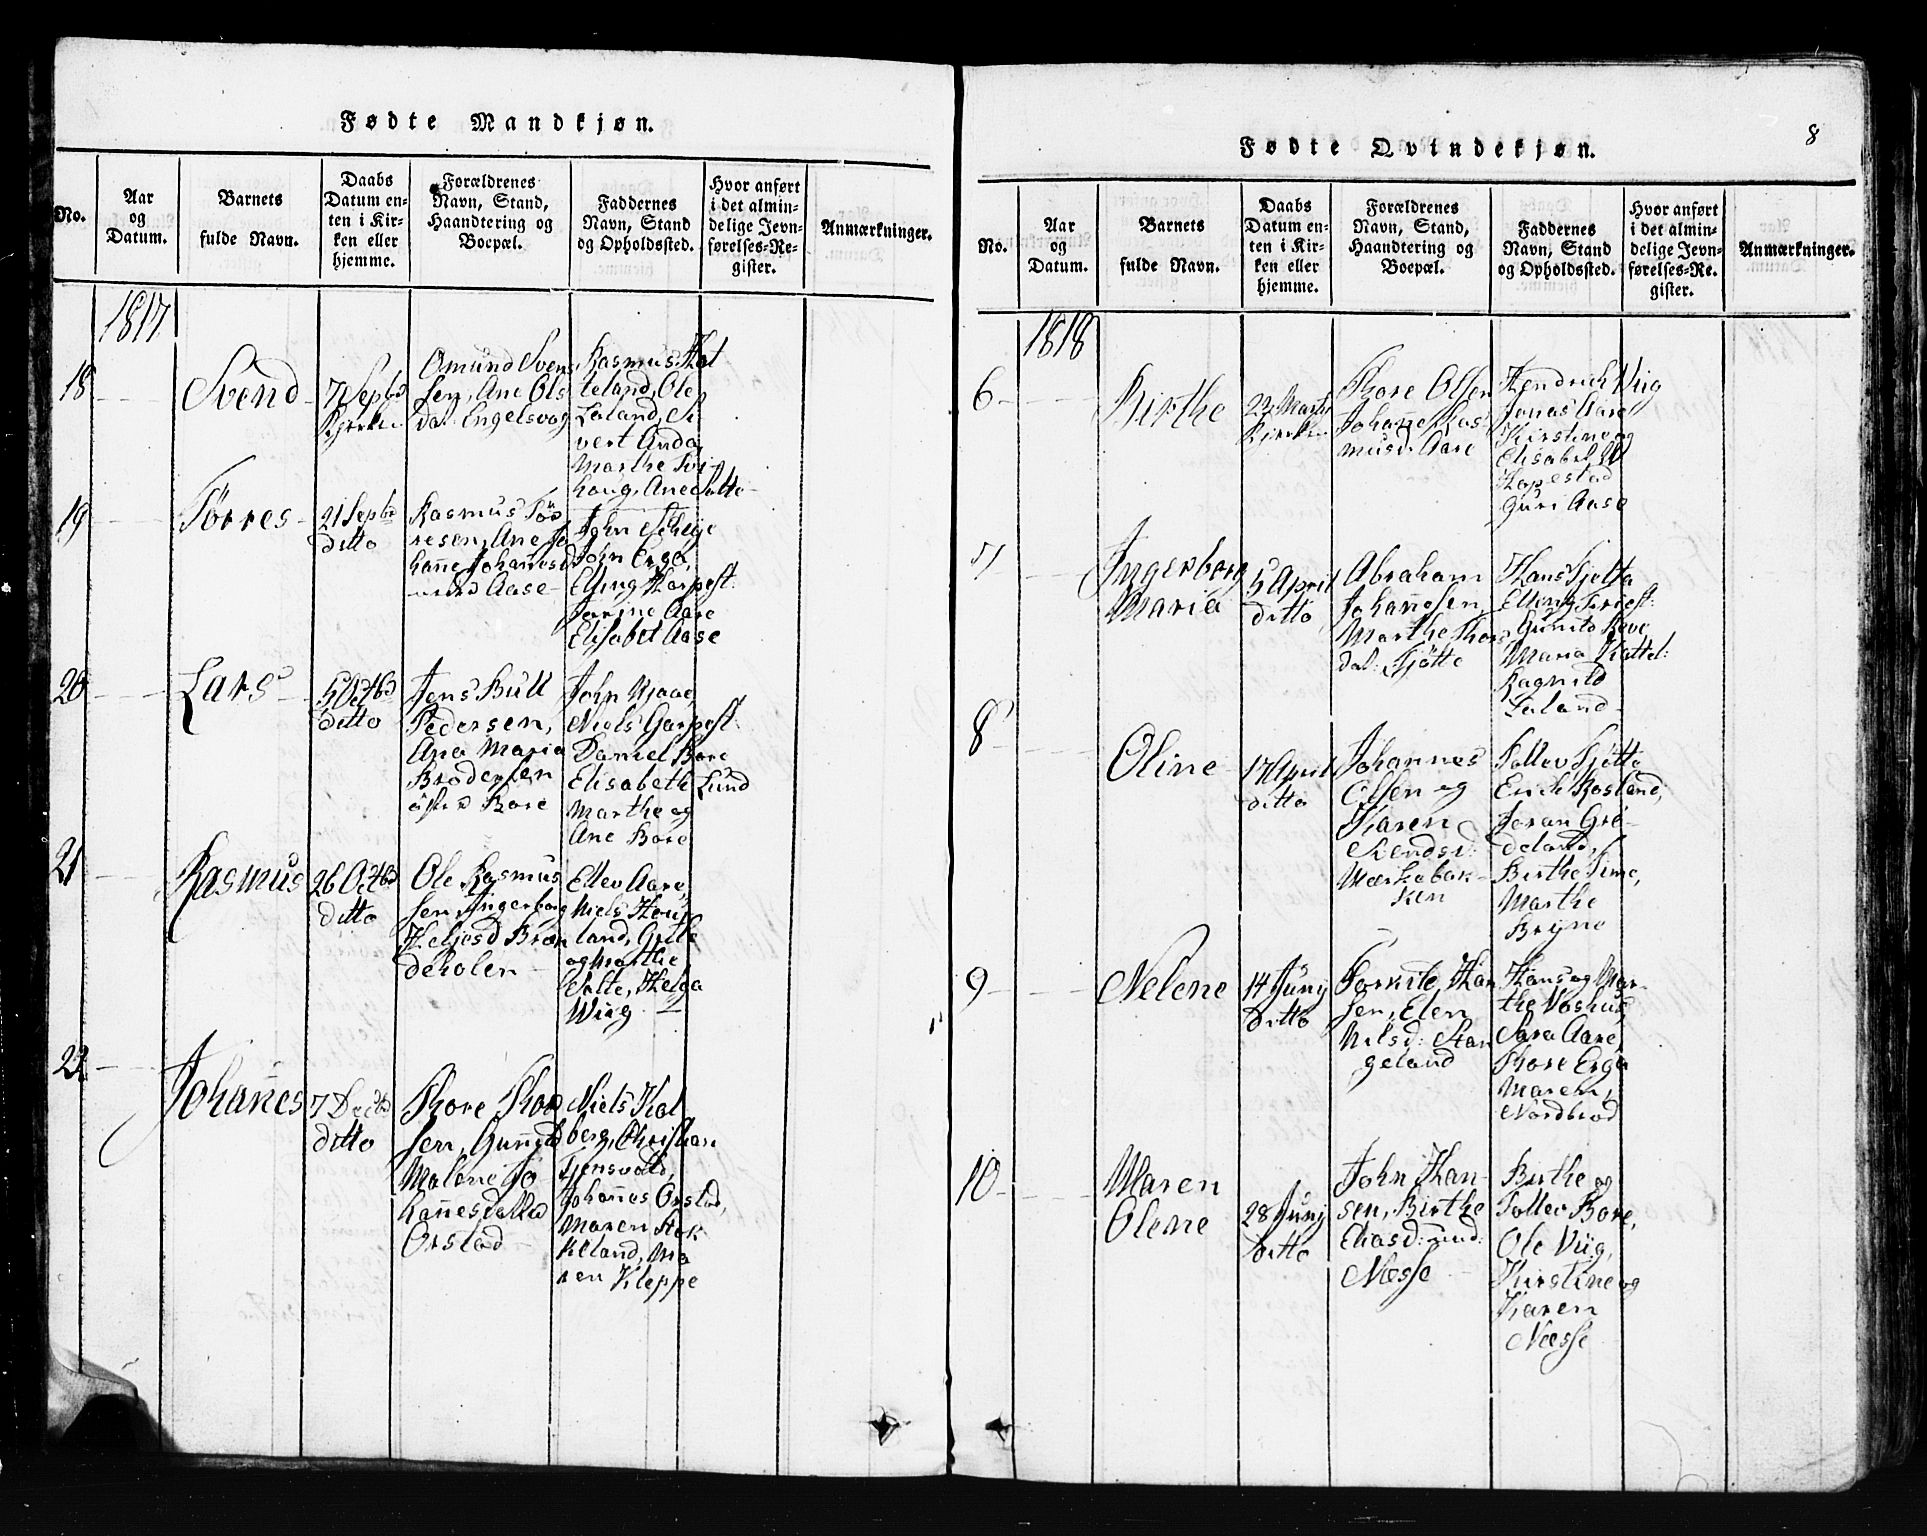 Fødte Mandkjøn.
No.
Aar
og
Datum.
Barnets
fulde Navn.
Daabs
Datum en-
ten i Kir-
ken eller
hjemme.
Forældrenes
Navn, Stand,
Haandtering og
Boepæl.
Faddernes
Navn, Stand
og Opholdssted.
Hvor anført
i det almin-
delige Jevn-
førelses-Re-
gister.
Anmærkninger.
1817
18
Svend
7 Septbr
Kjerken
Omund Svend
sen, Ane Ols
dat. Engelsvog
Rasmus Hat
teland, Ole
Laland, Si
vert Anda
Marthe Svi-
houg, Ane Salte
19
Tørres
21 Septbr
ditto
Rasmus Tør
resen, Ane Jo
hañe Johañesd
Aase
John Scheje
John Erga,
Elling Harpest:
Jorine Aare
Elisabet Aase
20
Lars
5 Octbr
ditto
Jens Bull
Pedersen,
Ana Maria
Brodersen
Bore
John Njaae,
Niels Garpest:
Daniel Bore
Elisabeth Lund
Marthe og
Ane Bore
21
Rasmus
26 Octbr
ditto
Ole Rasmus
sen, Ingerborg
Heljesd Bræn
deholen
Ellev Aare,
Niels Houg
land, Gitle
og Marthe
Salte, Helga
Wiig
22
Johañes
7 Decbr
ditto
Thore Thor
sen, Guñild
Malene Jo
hañesdatter
Orstad
Niels Hat
berg, Christian
Tjensvold,
Johañes Orstad,
Maren Stok
keland, Ma
ren Kleppe
8
Fødte Qvindekjøn.
No.
Aar
og
Datum.
Barnets
fulde Navn.
Daabs
Datum en-
ten i Kir-
ken eller
hjemme.
Forældrenes
Navn, Stand,
Haandtering og
Boepæl.
Faddernes
Navn, Stand
og Opholdssted.
Hvor anført
i det almin-
delige Jevn-
førelses-Re-
gister.
Anmærkninger.
1818
6
Birthe
22 Marts
Kjerken
Thore Olsen
Johañe Ras-
musd. Aare
Hendrich Viig
Jonas Aare
Kirstine og
Elisabet
Hapestad
Guri Aase
7
Ingerborg
Maria
5 April
ditto
Abraham
Johañesen,
Marthe Thors
dat: Tjøtte
Hans Tjøtta
Elleng
Gunild Reve
Maria Hattel:
Ragnild
Laland
8
Oline
17 April
ditto
Johannes
Olsen og
Karen
Svendsd:
Mærkebæk-
ken
Tollev Tjøtte
Erich Rosland,
Joran Gre-
deland,
Birthe Time,
Marthe
Bryne
9
Nelene
14 Juny
Ditto
Torkild Han
sen, Elen
Nilsd: Stan
geland
Hans og Mar-
the Voshus,
Sara Aare,
Thore Erga
Maren
Nordbraad
10
Maren
Olene
28 Juny
Ditto
John Han-
sen, Birthe
Eliasd:
Næsse
Birthe og
Tollev Bore,
Ole Viig,
Kirstine og
Karen
Næsse